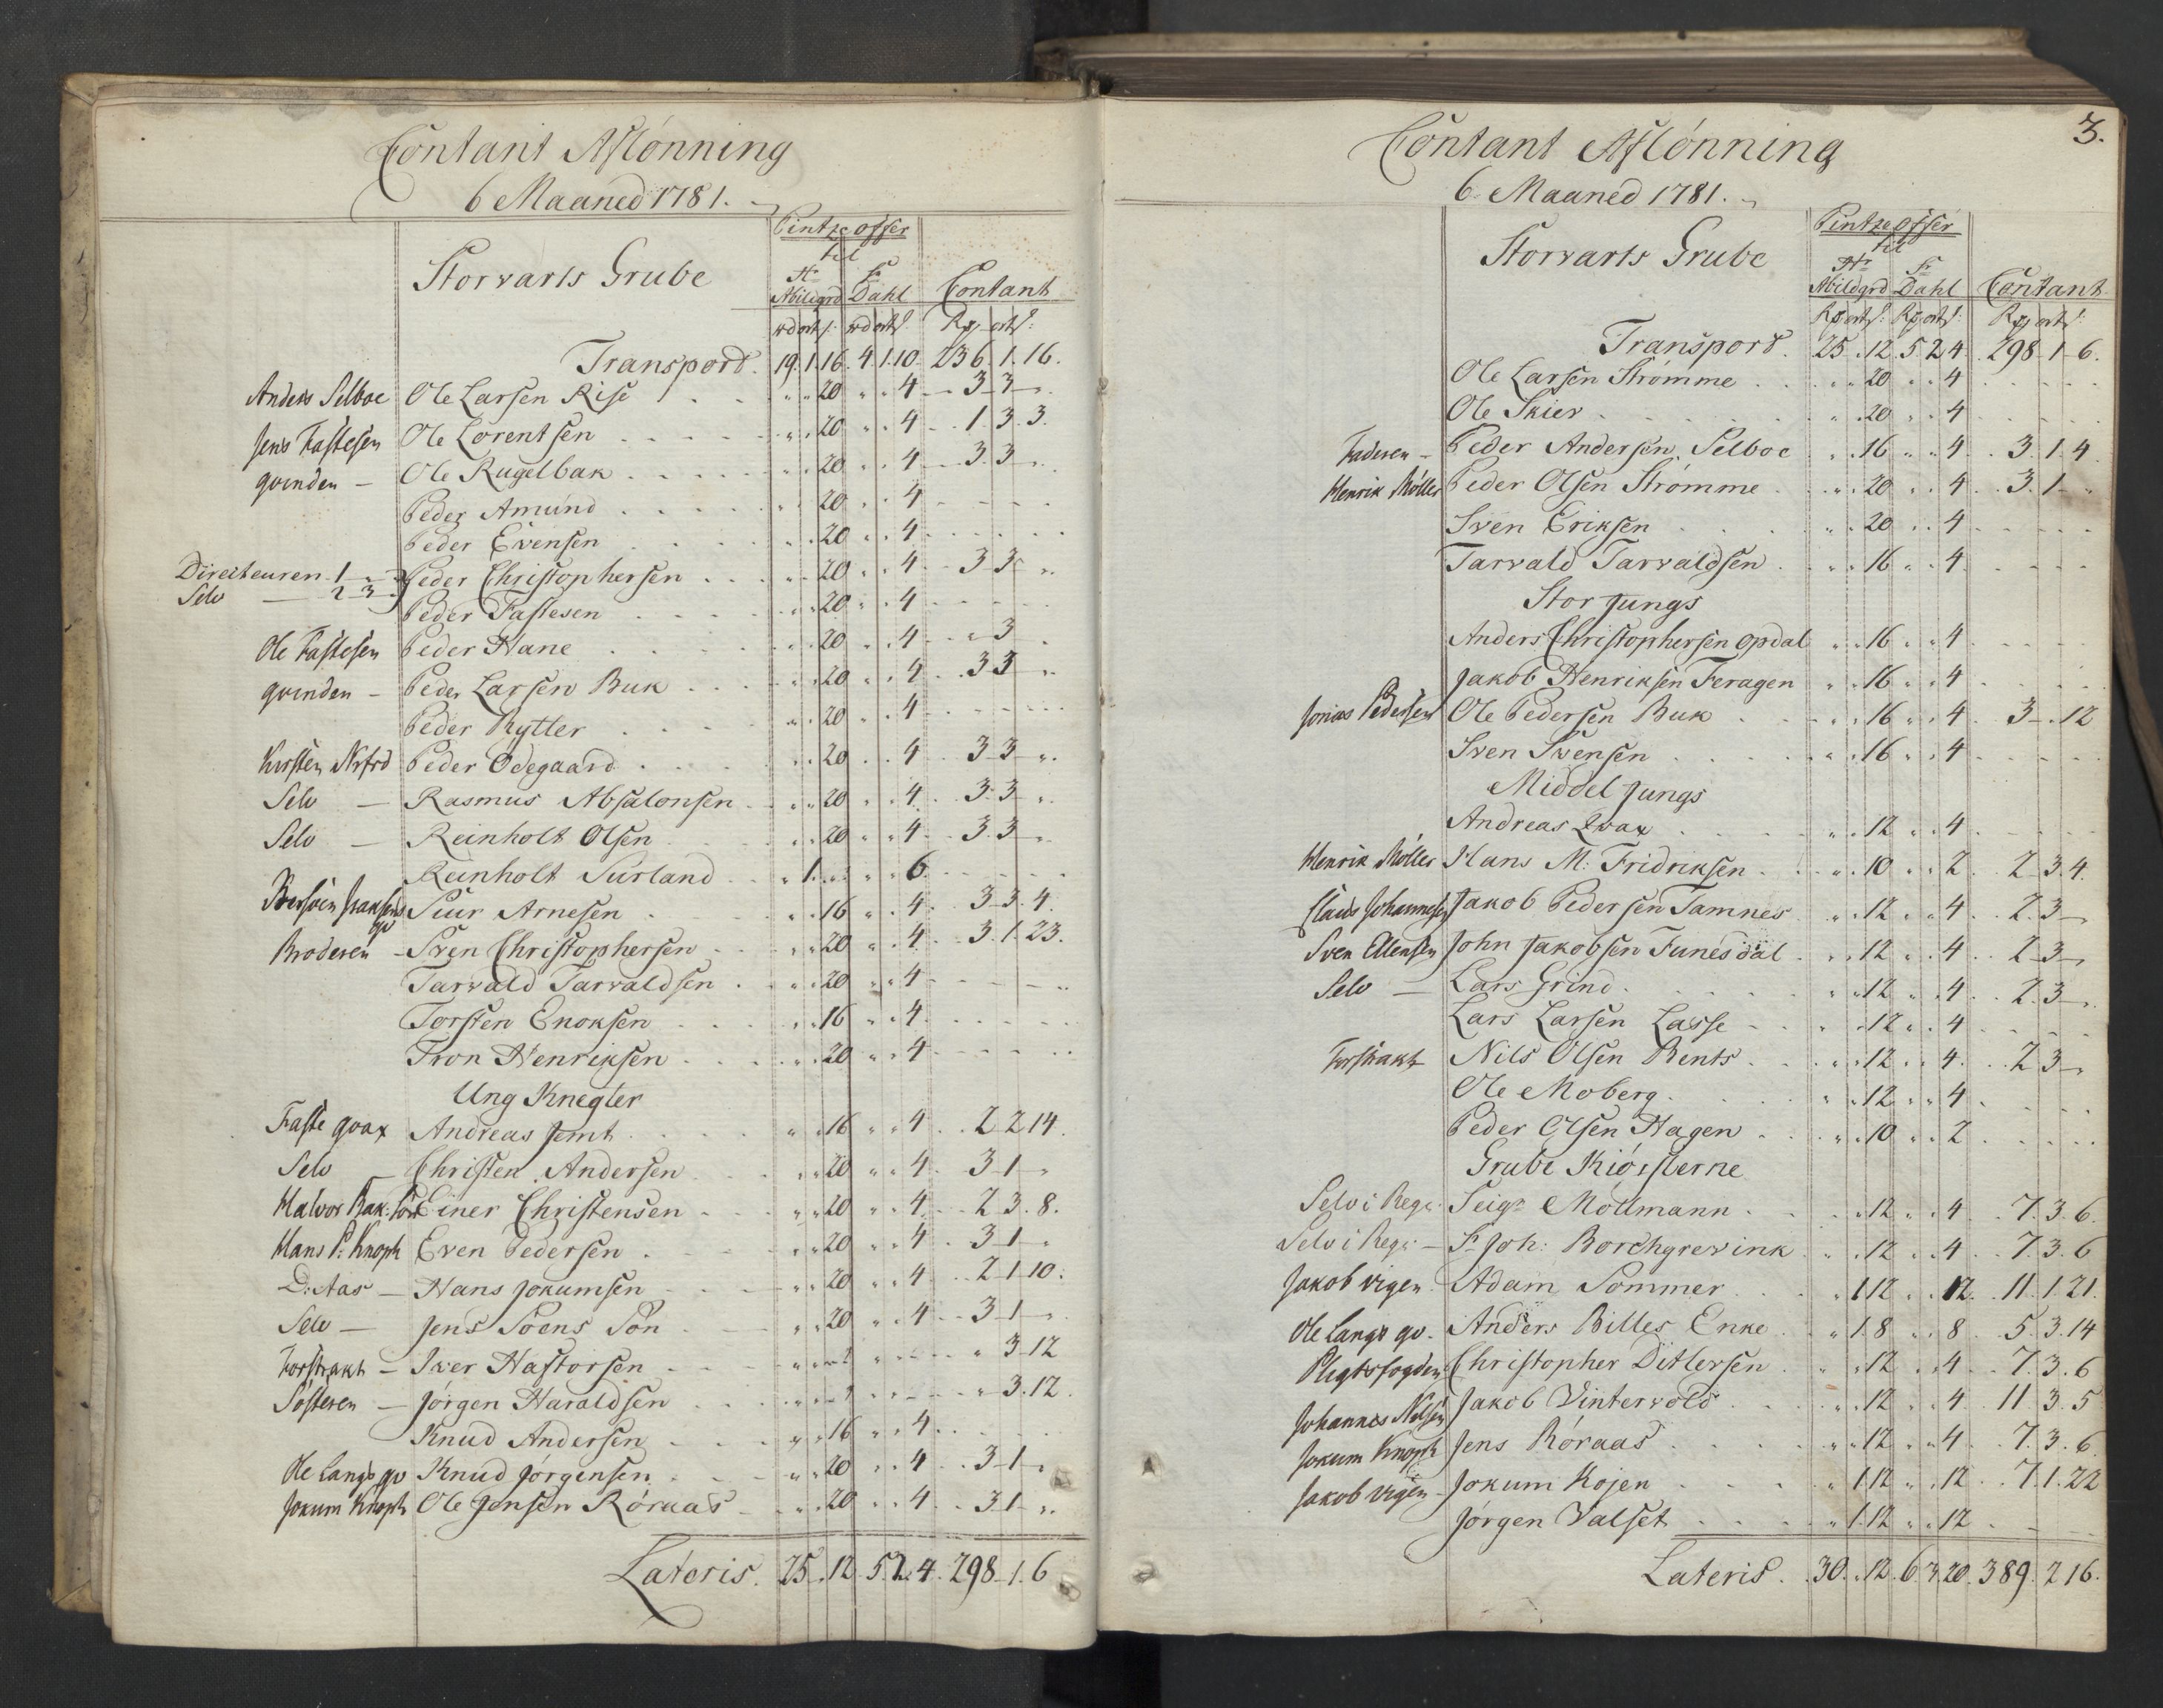 Contant Aflönning
6 Maaned 1781.
Storvarts Grube
Pintze offer
til
Hr Abildgrd Sr Dahl Contant
rd ort s: rd ort s: Rdr ort s:
Transport. 19. 1. 16. 4. 1. 10. 236. 1. 16.
Anders Selboe Ole Larsen Rise " " 20 " " 4 3 3 "
Jens Fastesen Ole Lorentsen " " 20 " " 4 1. 3. 3.
qvinden – Ole Rugelbak " " 20 " " 4 3. 3 "
Peder Amund " " 20 " " 4
Peder Evensen " " 20 " " 4
Directeuren 1 – " Peder Christophersen " " 20 " " 4 3 3 "
Selv – 2 3
Peder Fastesen " " 20 " " 4
Ole Fastesen Peder Hane " " 20 " " 4 " 3
qvinden – Peder Larsen Buk " " 20 " " 4 3 3 "
Peder Rytter " " 20 " " 4
Kirsten Peder Odegaard " " 20 " " 4 3 3 "
Selv – Rasmus Absalonsen " " 20 " " 4 3. 3 "
Selv – Reinholt Olsen " " 20 " " 4 3. 3 "
Reinholt Surland " 1. " " " 6
Siur Arnesen " " 16 " " 4 3 3. 4.
Broderen – Sven Christophersen " " 20 " " 4 3. 1. 23.
Tarvald Tarvaldsen " " 20 " " 4
Torsten Enoksen " " 16 " " 4
Tron Henriksen " " 20 " " 4
Ung Knegter
Faste qvax Andreas Jemt " " 16 " " 4 2 2 14.
Selv – Christen Andersen " " 20 " " 4 3 1 "
Halvor Bak: Einer Christensen " " 20 " " 4 2 3. 8.
Hans P: Knoph Even Pedersen " " 20 " " 4 3 1 "
D: Aas – Hans Jokumsen " " 20 " " 4 2 1 10:
Selv – Jens Söens Sön " " 20 " " 4 3 1 "
Forstrakt – Iver Hastorsen " 3 12
Søsteren – Jörgen Haraldsen " 3. 12.
Knud Andersen " " 16 " " 4
Ole Langs qv Knud Jörgensen " " 20 " " 4 3 1 "
Jokum Knoph Ole Jensen Röraas " " 20 " " 4 3 1 "
Lateris. 25 " 12. 5. 2. 4. 298. 1. 6
3.
Contant Aflönning
6 Maaned 1781.
Storvarts Grube
Pintze offer
til
Hr Abildgrd Sr Dahl Contant
Rdr ort s: Rdr ort s: Rdr ort s:
Transport. 25 " 12. 5. 2. 4. 298. 1. 6.
Ole Larsen Strömme " " 20 " " 4
Ole Skier " " 20 " " 4
Faderen – Peder Andersen Selboe " " 16 " " 4 3. 1. 4
Henrik Möller Peder Olsen Strömme " " 20 " " 4 3. 1 "
Sven Eriksen " " 20 " " 4
Tarvald Tarvaldsen " " 16 " " 4
Stor Jungs
Anders Christophersen Opdal " " 16 " " 4
Jakob Henriksen Feragen " " 16 " " 4
Jonas Pedersen Ole Pedersen Buk " " 16 " " 4 3 " 12
Sven Svensen " " 16 " " 4
Middel Jungs
Andreas Qvax " " 12 " " 4
Henrik Möller Hans M: Fridriksen " " 10 " " 2 2 3. 4.
Claus Johannesen Jakob Pedersen Tamnes " " 12 " " 4 2. 3 "
Sven Ellensen John Jakobsen Funesdal " " 12 " " 4 2 3 "
Selv – Lars Grind " " 12 " " 4 2. 3 "
Lars Larsen Lasse " " 12 " " 4
Forstrakt Nils Olsen Rents " " 12 " " 4 2 3 "
Ole Moberg " " 12 " " 4
Peder Olsen Hagen " " 10 " " 2
Grube Kiörslerne
Selv i Regn: Seigr Mollmann " " 12 " " 4 7. 3. 6.
Selv i Regn: – Sr Joh: Borchgrevink " " 12 " " 4 7. 3. 6
Jakob vigen Adam Sommer " 1 12 " " 12 11. 1. 21.
Ole Langs qv. Anders Billes Enke " 1. 8 " " 8 5. 3. 14
Pligtsfogden Christopher Ditlersen " " 12 " " 4 7. 3. 6
Johannes Nilsen Jakob Vintervold " " 12 " " 4 11 3. 5
Jokum Knoph Jens Röraas " " 12 " " 4 7. 3. 6.
Jakob vigen Jokum Kojen " 1 12 " " 12 7. 1. 22
Jörgen Valset " 1. 12 " " 12
Lateris. 30. " 12. 6. 3. 20. 389. 2 16.